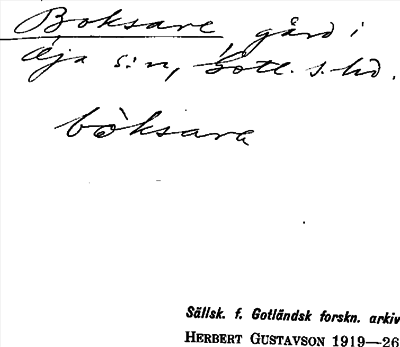 Boksare, gård i
Öja s:n, Gotl. s. hd.
bòksarę
Sällsk. f. Gotländsk forskn. arkiv
HERBERT GUSTAVSON 1919—26